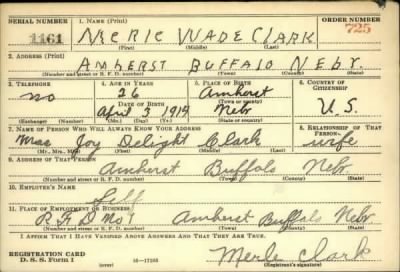 SERIAL NUMBER 1. NAME (Print) ORDER NUMBER
1161 MERLE WADE CLARK 725
(First) (Middle) (Last)
2. ADDRESS (Print)
AMHERST BUFFALO NEBr.
(Number and street or R. F. D. number) (Town) (County) (State)
3. TELEPHONE 4. AGE IN YEARS 5. PLACE OF BIRTH 6. COUNTRY OF CITIZENSHIP
no 26 Amherst
DATE OF BIRTH (Town or county)
April 3 1914 Nebr U.S.
(Exchange) (Number) (Mo.) (Day) (Yr.) (State or country)
7. NAME OF PERSON WHO WILL ALWAYS KNOW YOUR ADDRESS 8. RELATIONSHIP OF THAT PERSON
Mrs. Joy Delight Clark wife
(Mr., Mrs., Miss) (First) (Middle) (Last)
9. ADDRESS OF THAT PERSON
Amherst Buffalo Nebr
(Number and street or R. F. D. number) (Town) (County) (State)
10. EMPLOYER'S NAME
Self
11. PLACE OF EMPLOYMENT OR BUSINESS
R.F.D No 1 Amherst Buffalo Nebr
(Number and street or R. F. D. number) (Town) (County) (State)
I AFFIRM THAT I HAVE VERIFIED ABOVE ANSWERS AND THAT THEY ARE TRUE.
REGISTRATION CARD
D. S. S. Form 1 (over) 16-17105 Merle Clark
(Registrant's signature)